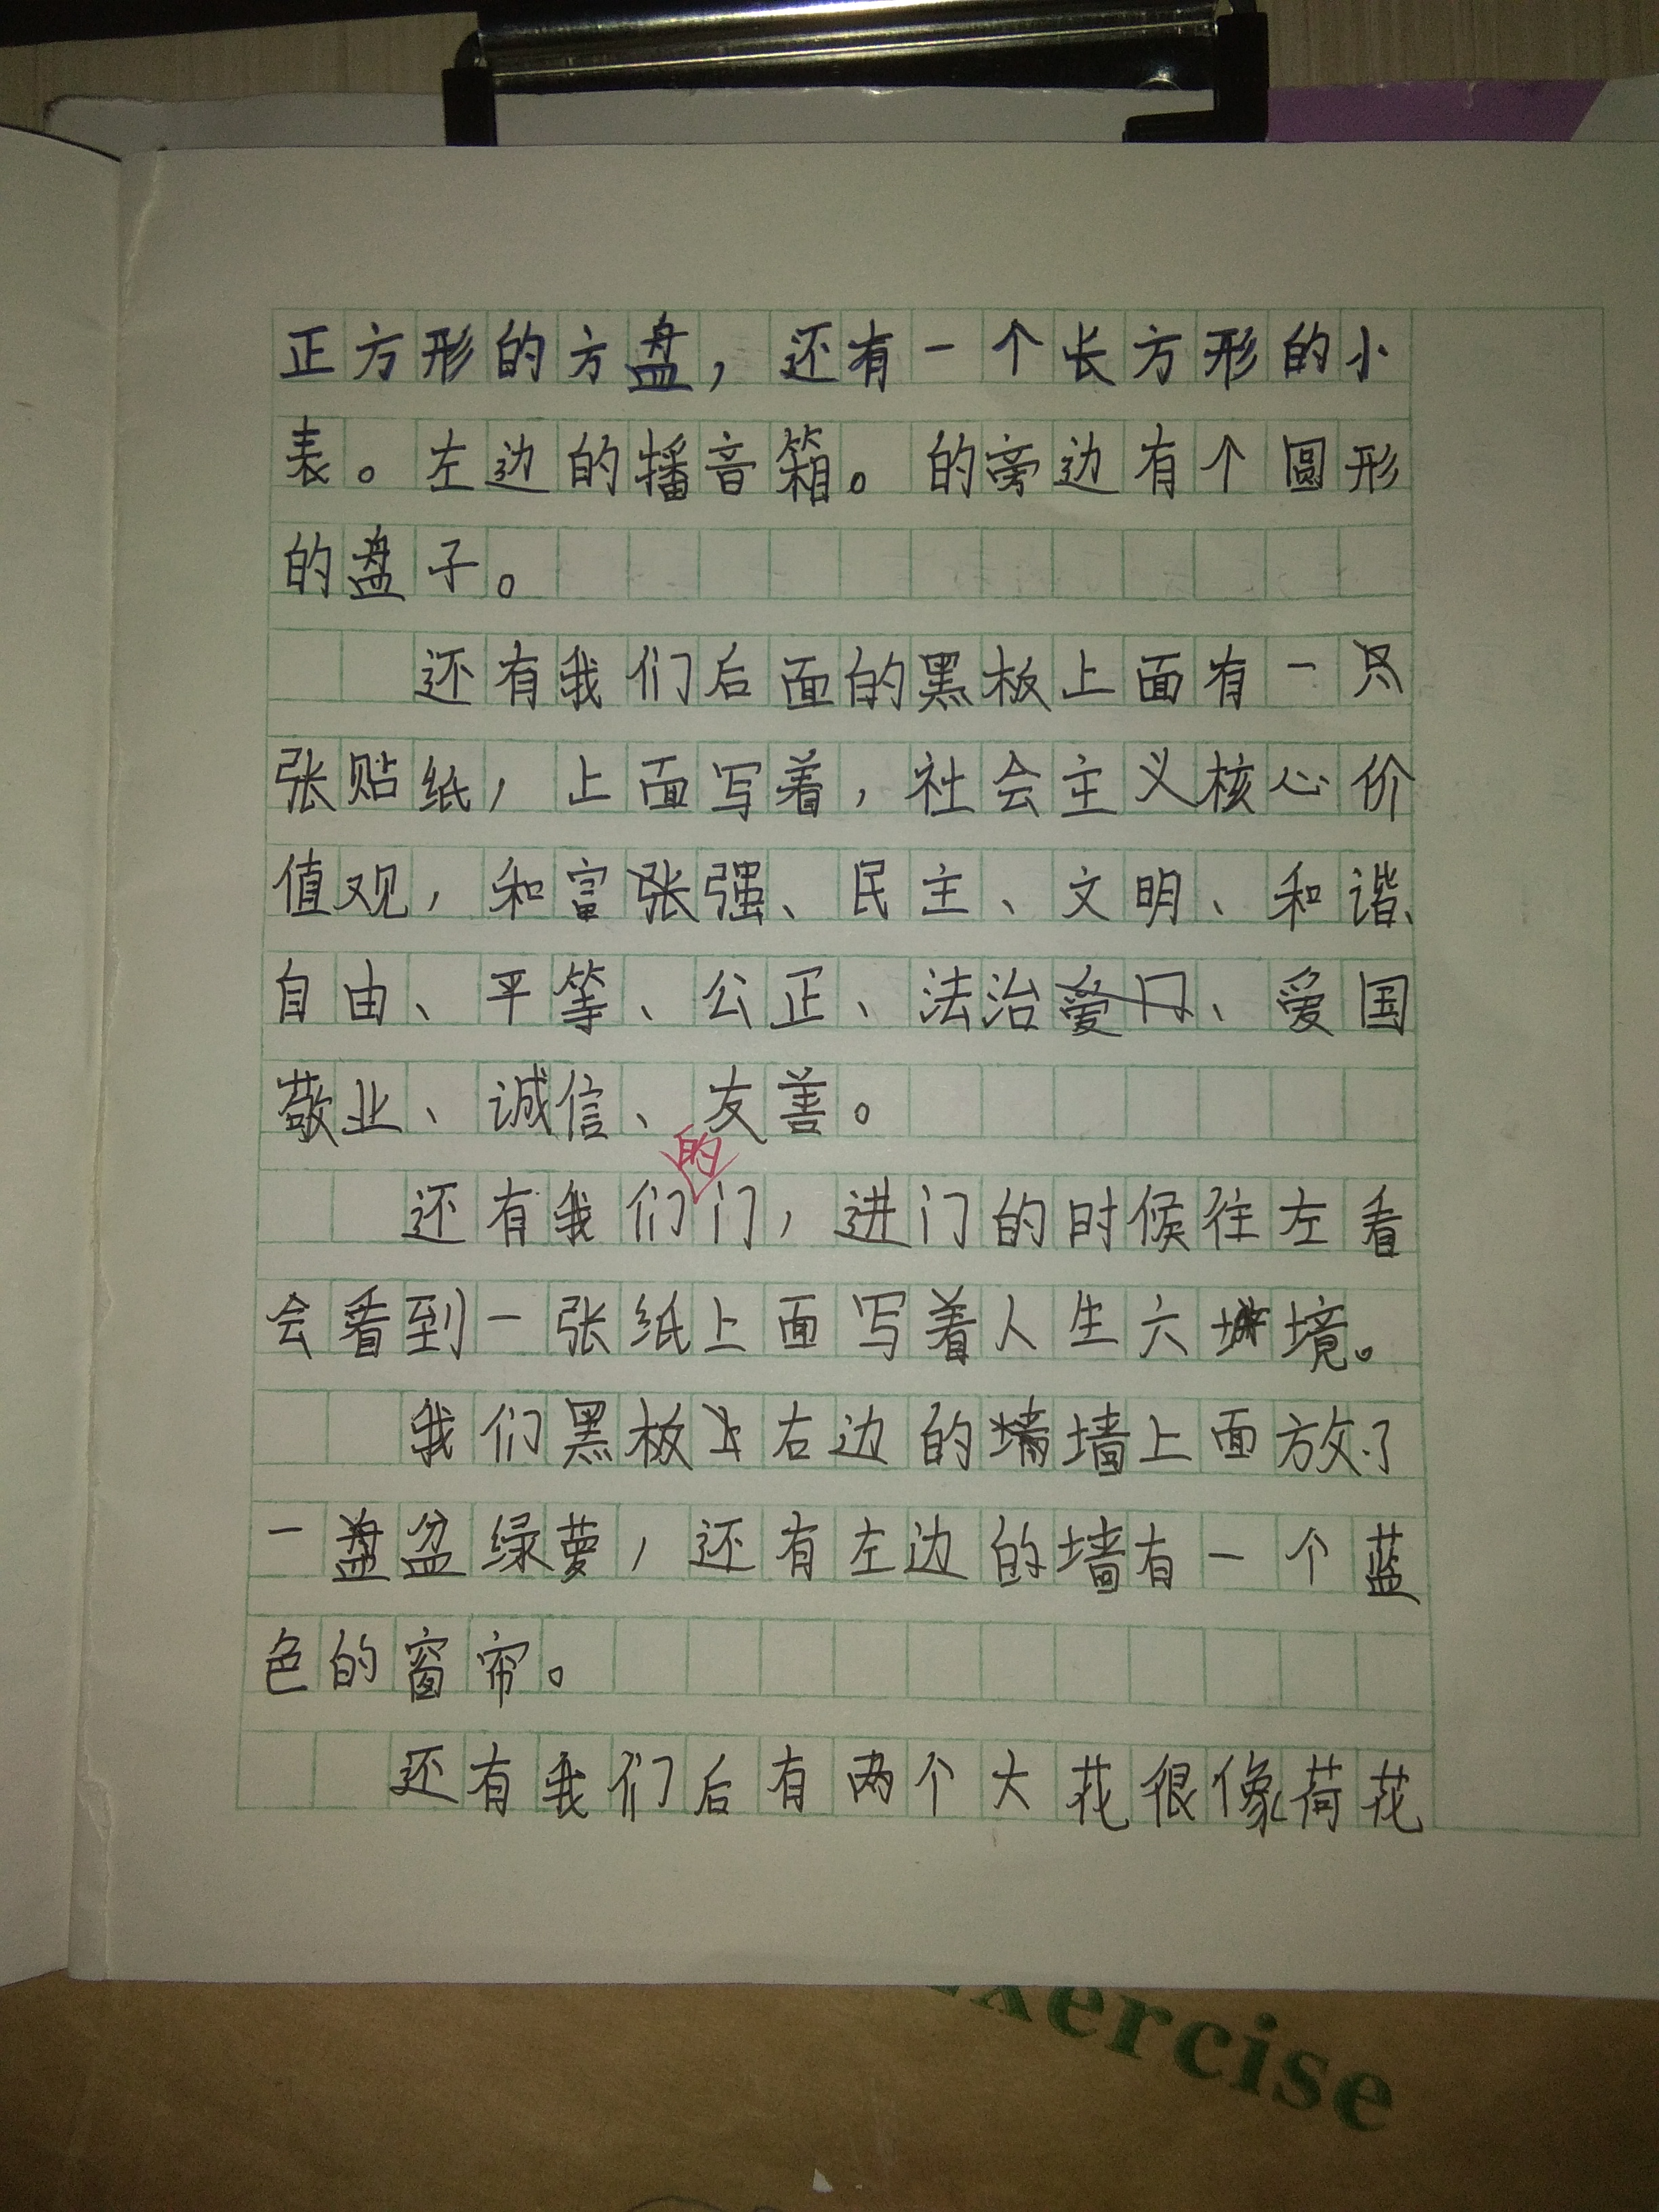 正方形的方盘，还有一个长方形的小
表。左边的播音箱。的旁边有个圆形
的盘子。
还有我们后面的黑板上面有一
张贴纸，上面写着，社会主义核心价
值观，和富强、民主、文明、和谐、
自由、平等、公正、法治、爱国
敬业、诚信、友善。
还有我们的门，进门的时候往左看
会看到一张纸上面写着人生六境。
我们黑板右边的墙上面放了
一盆绿萝，还有左边的墙有一个蓝
色的窗帘。
还有我们后有两个大花很像荷花
exercise